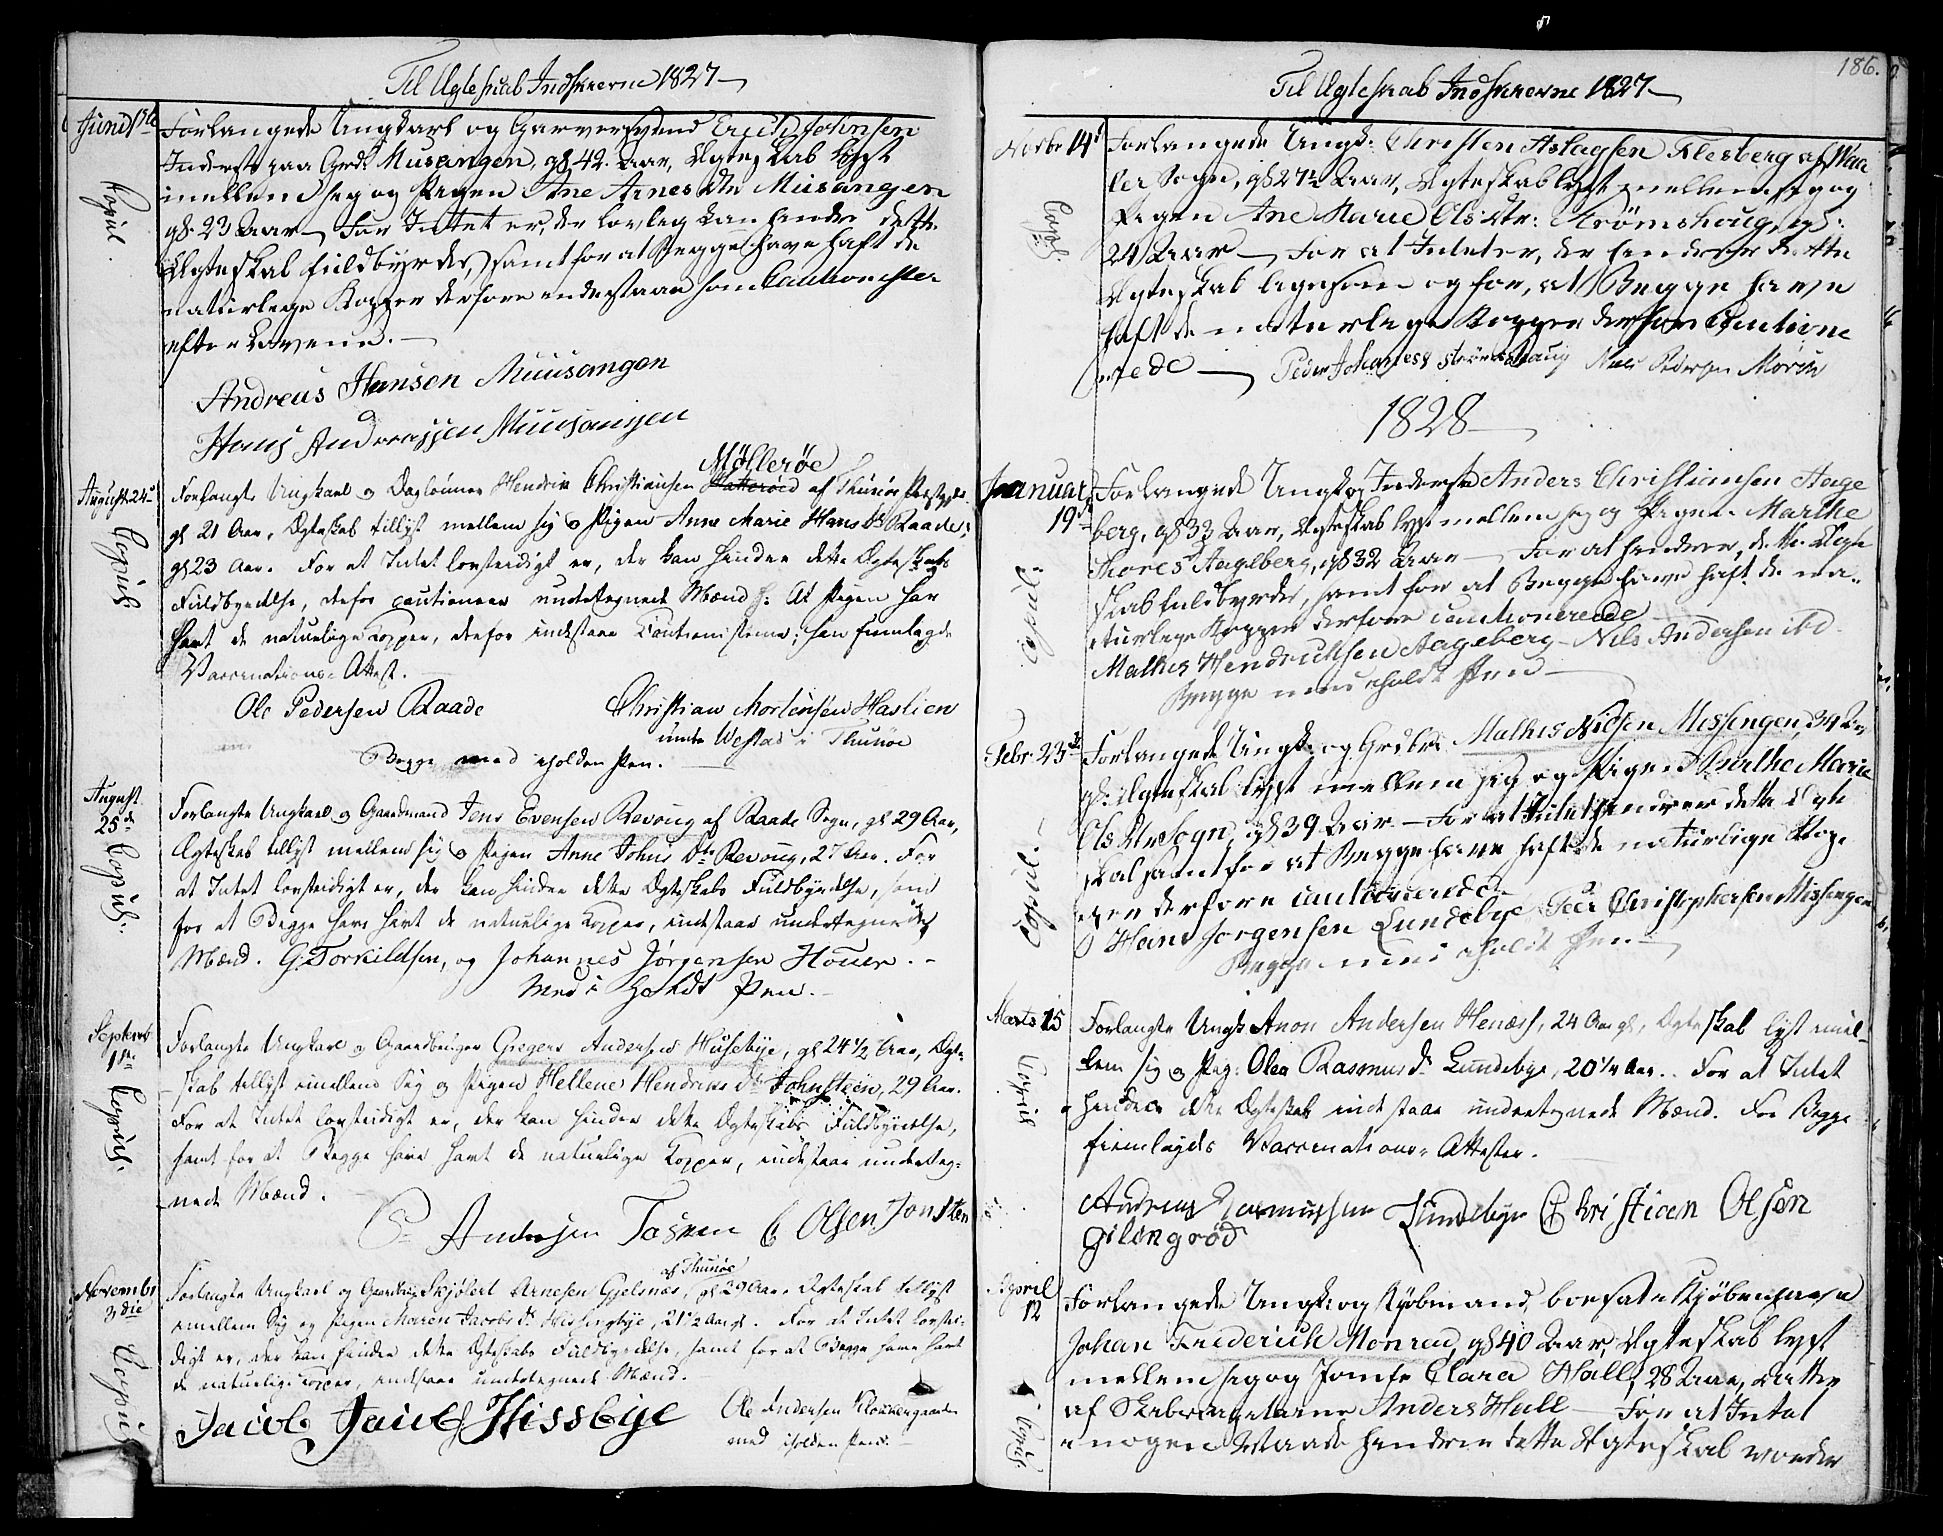 Til Ægteskab Indskrevne 1827
Junii 15de
Forlangede Ungkarl og Garversvend Erich Johnsen
Inderst paa Grd. Musangen, gl. 42 Aar, Ægteskab lyst
imellem seg og Pigen Ane Arnes Dtr Musangen
gl. 23 Aar. For Intet er, der lovleg kan hindre dette
Ægteskab fuldbyrdes, samt for at Begge have haft de
naturlege Kopper derfore indestaar som Cautionister
efter Lovene.
Copul.
Andreas Hansen Muusangen
Hans Andreassen Muusangen
August 24de
Copuls
Møllerøe
Forlangte Ungkarl og Daglønner Hendrik Christiansen af Thunøe Præstegjeld
gl 21 Aar, Ægteskab tillyst mellem sig og Pigen Anne Marie Hans Dr Raade,
gl 23 Aar. For at Intet lovstridigt er, der kan hindre dette Ægteskabs
Fuldbyrdelse, derfor cautionere undertegnede Mænd. At Pigen har
havt de naturlige Kopper, derfor indestaae Cautionisterne; han fremlagde
Vaccinations-Attest.
Ole Pedersen Raade
Christian Mortensen Haslien
under Westad i Thunøe
Begge med iholden Pen.
August
25de
Copuls.
Forlangte Ungkarl og Gaardmand Jens Evensen Revoug af Raade Sogn, gl 29 Aar,
Ægteskab tillyst mellem sig og Pigen Anne Johns Dtr Revoug, 27 Aar. For
at Intet lovstridigt er, der kan hindre dette Ægteskabs Fuldbyrdelse, samt
for at Begge have havt de naturlige Kopper, indestaae undertegnede
Mænd. G. Torkildsen, og Johannes Jørgensen Houer.
Med i Holdt Pen.
Septembr
1ste
Copuls.
Forlangte Ungkarl og Gaardbruger Gregers Andersen Husebye, gl 24 1/2 Aar, Ægte-
skab tillyst imellem Sig og Pigen Hellene Hendriks Dr Johnsteen, 29 Aar.
For at Intet lovstridigt er, der kan hindre dette Ægteskabs Fuldbyrdelse,
samt for at Begge have havt de naturlige Kopper, indestaae underteg-
nede Mænd.
Andersen Tasken C Olsen Jonsten
Novembr
3die
Copuls
af Thunøe
Forlangte Ungkarl og Gaardbrug. Skjølert Arnesen Gjelsnæs, gl 29 Aar, Ægteskab tillyst
imellem Sig og Pigen Maren Jacobs Dr Hissingbye, 21 1/2 Aar gl. For at Intet lovstri-
digt er, der kan hindre dette Ægteskabs Fuldbyrdelse, samt for at Begge have havt
de naturlige Kopper, indestaae undertegnede Mænd.
Jacob Jacobs Hissbye
Ole Andersen Klokkergaarden
med iholden Pen.
186.
Til Ægteskab Indskrevne 1827
Novbr 14d
Copl.
Forlangede Ungk. Christen Aslagsen Flesberg af Waa-
ler Sogn, gl 27 1/2 Aar, Ægteskab lyst mellem seg og
Pigen Ane Marie Ols Dtr: Strømshoug, gl:
21 Aar. For at Intet er, der hindrer dette
Ægteskab ligesom og for, at Begge have
haft de naturlege Kopper derfore Cautione-
rede
Peder Johaness Strømshaug Niels Pedersen Morin
1828
Januar
19de
Copul:
Forlangede Ungk. og Inderste Anders Christiansen Aage
berg, gl 33 Aar, Ægteskab lyst mellem seg og Pigen Marthe
Thores Aagberg, gl 32 Aar. For at hindrer, dette Ægte
skab fuldbyrdes, samt for at Begge have haft de na-
turlege Kopper derfore cautionerede
Mathis Hendrichsen Aageberg - Nils Andersen ibd.
Begge med iholdt Pen
Febr. 23de
Copul.
Forlangede Ungk. og Grdbr. Mathis Nielsen Messengen, 34 Aar
gl: Ægteskab lyst mellem seg og Pigen Marthe Marie
Ols Dtr Sogn, gl 39 Aar. For at Intet hindrer dette Ægte
skab samt for at Begge have haft de naturlige Kop-
per derfore cautionerede
Hans Jorgensen Lundebye Peer Christophersen Missengen
Begge med iholdt Pen
Marts 15
Copuls
Forlangte Ungk. Anon Andersen Henæss, 24 Aar gl, Ægteskab lyst imel-
lem sig og Pig: Olea Rasmus Dr Lundebye, 20 1/4 Aar. For at Intet
hindrer dette Ægteskab indestaae undertegnede Mænd. For Begge
fremlagdes Vaccinations-Attester.
Andreas Rasmussen Lundebye Christian Olsen
Gilingrød
April
12
Copul.
Forlangede Ungk. og Kjøbmand, boesat i Kjøbenhavn
Johan Frederich Monrad, gl 40 Aar, Ægteskab lyst
mellem seg og Jomfr Clara Hall, 28 Aar, Datter
af Skibscapitaine Anders Hall. For at Intet
i nogen Maade hindrer dette Ægteskab worder